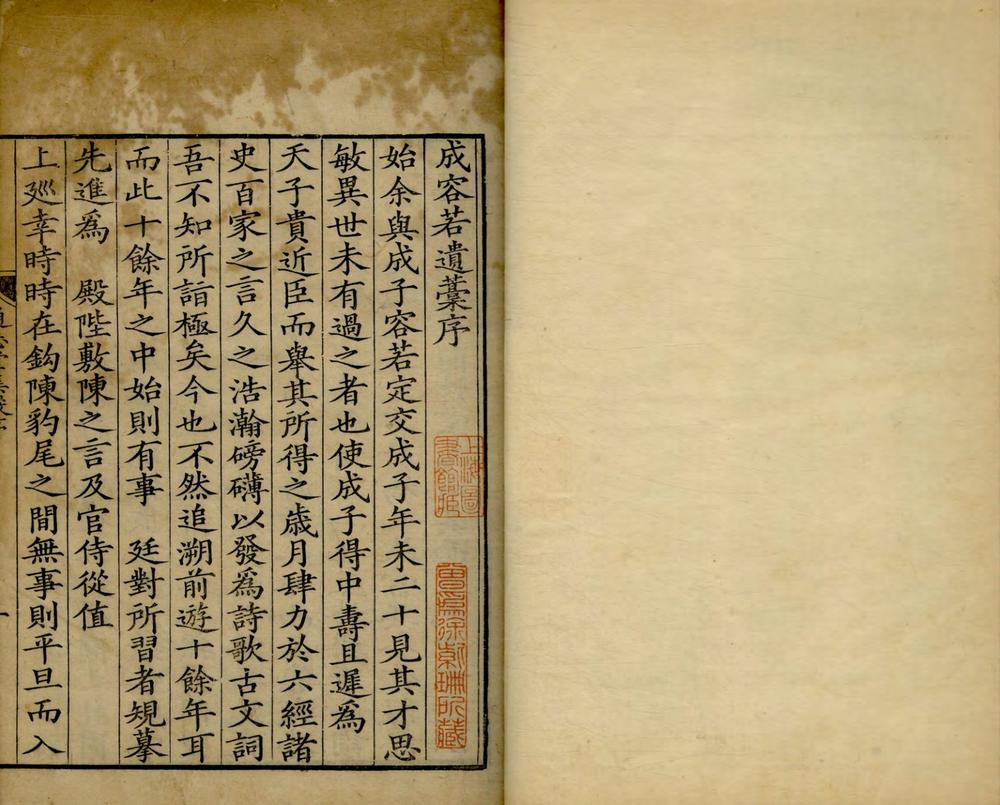 成容若遺藁序
始余與成子容若定交成子年未二十見其才思
敏異世未有過之者也使成子得中壽且遲爲
天子貴近臣而舉其所得之歲月肆力於六經諸
史百家之言久之浩瀚磅礴以發爲詩歌古文詞
吾不知所詣極矣今也不然追溯前遊十餘年耳
而此十餘年之中始則有事　廷對所習者規摹
先進爲　殿陛敷陳之言及官侍從值
上廵幸時時在鈎陳豹尾之間無事則平旦而入
上海圖
書館藏
曾爲徐紫珊所藏